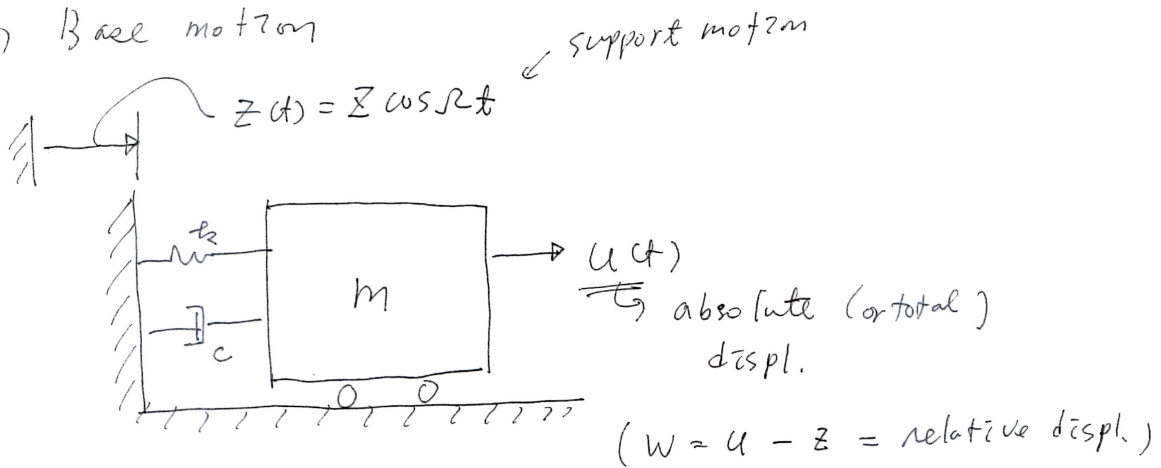 ) Base motion
support motion
z(t) = Z cos Ωt
k
m
c
u(t)
absolute (or total)
displ.
(w = u - z = relative displ.)